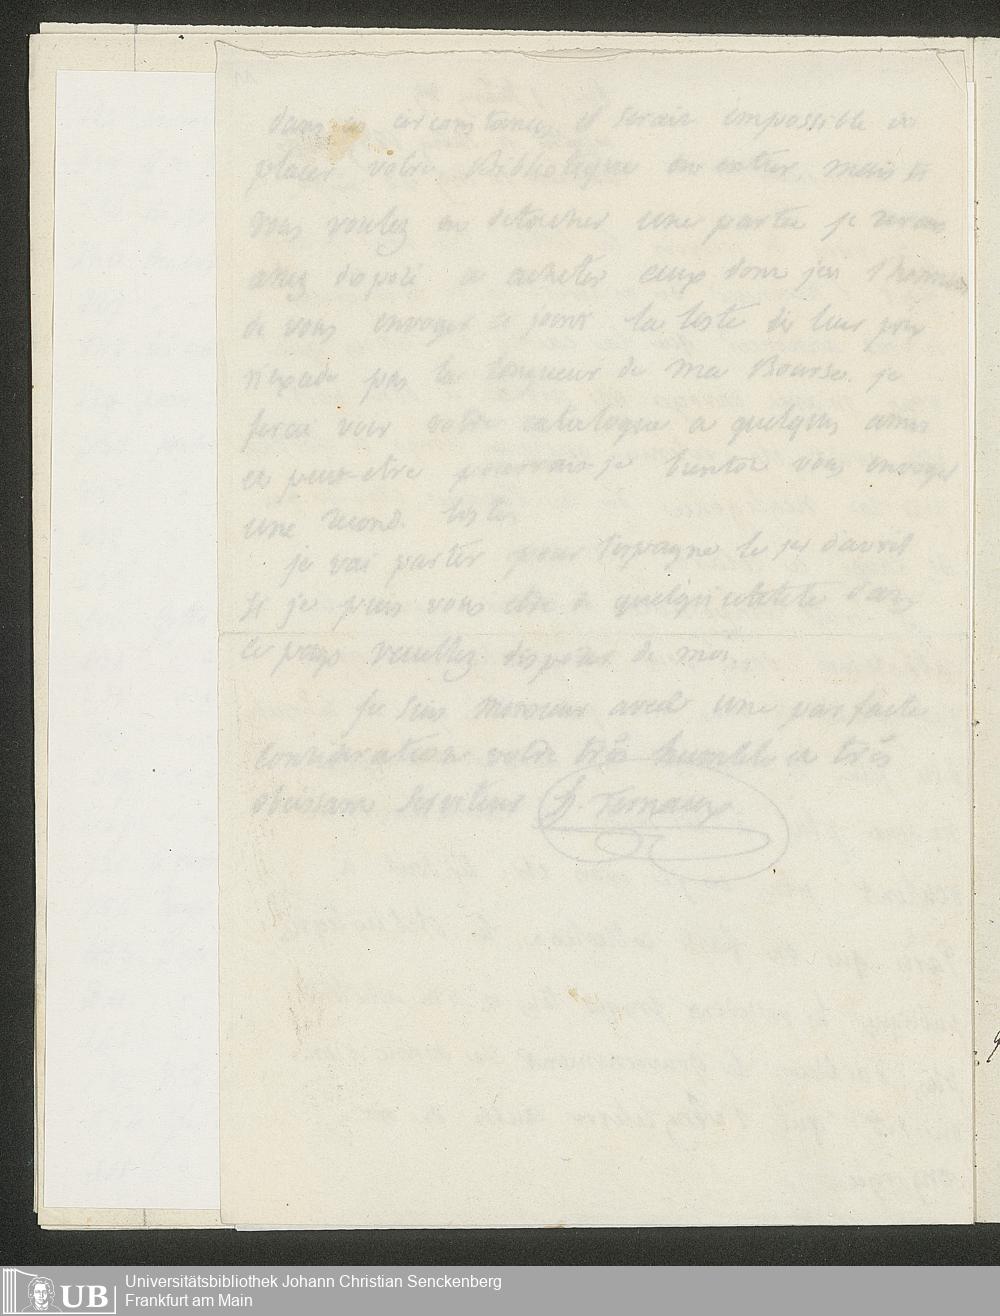 dans ces circonstances il serait impossible de
placer votre Biblioteque en entier. mais si
vous voulez en detacher une partie je serais
assez disposé a acheter ceux dont jai l'honneur
de vous envoyer ci joint la liste si leur prix
n'excede pas la longueur de ma Bourse. je
ferai voir votre catalogue a quelques amis
et peut-etre pourrais-je bientot vous envoyer
une second liste
je vai partir pour l'espagne le 1er d'avril
si je puis vous etre de quelqu'utilité dans
ce pays veuillez disposer de moi.
Je suis Monsieur avec une parfaite
consideration votre très humble et très
obeissant serviteur H. Ternaux
UB
Universitätsbibliothek Johann Christian Senckenberg
Frankfurt am Main